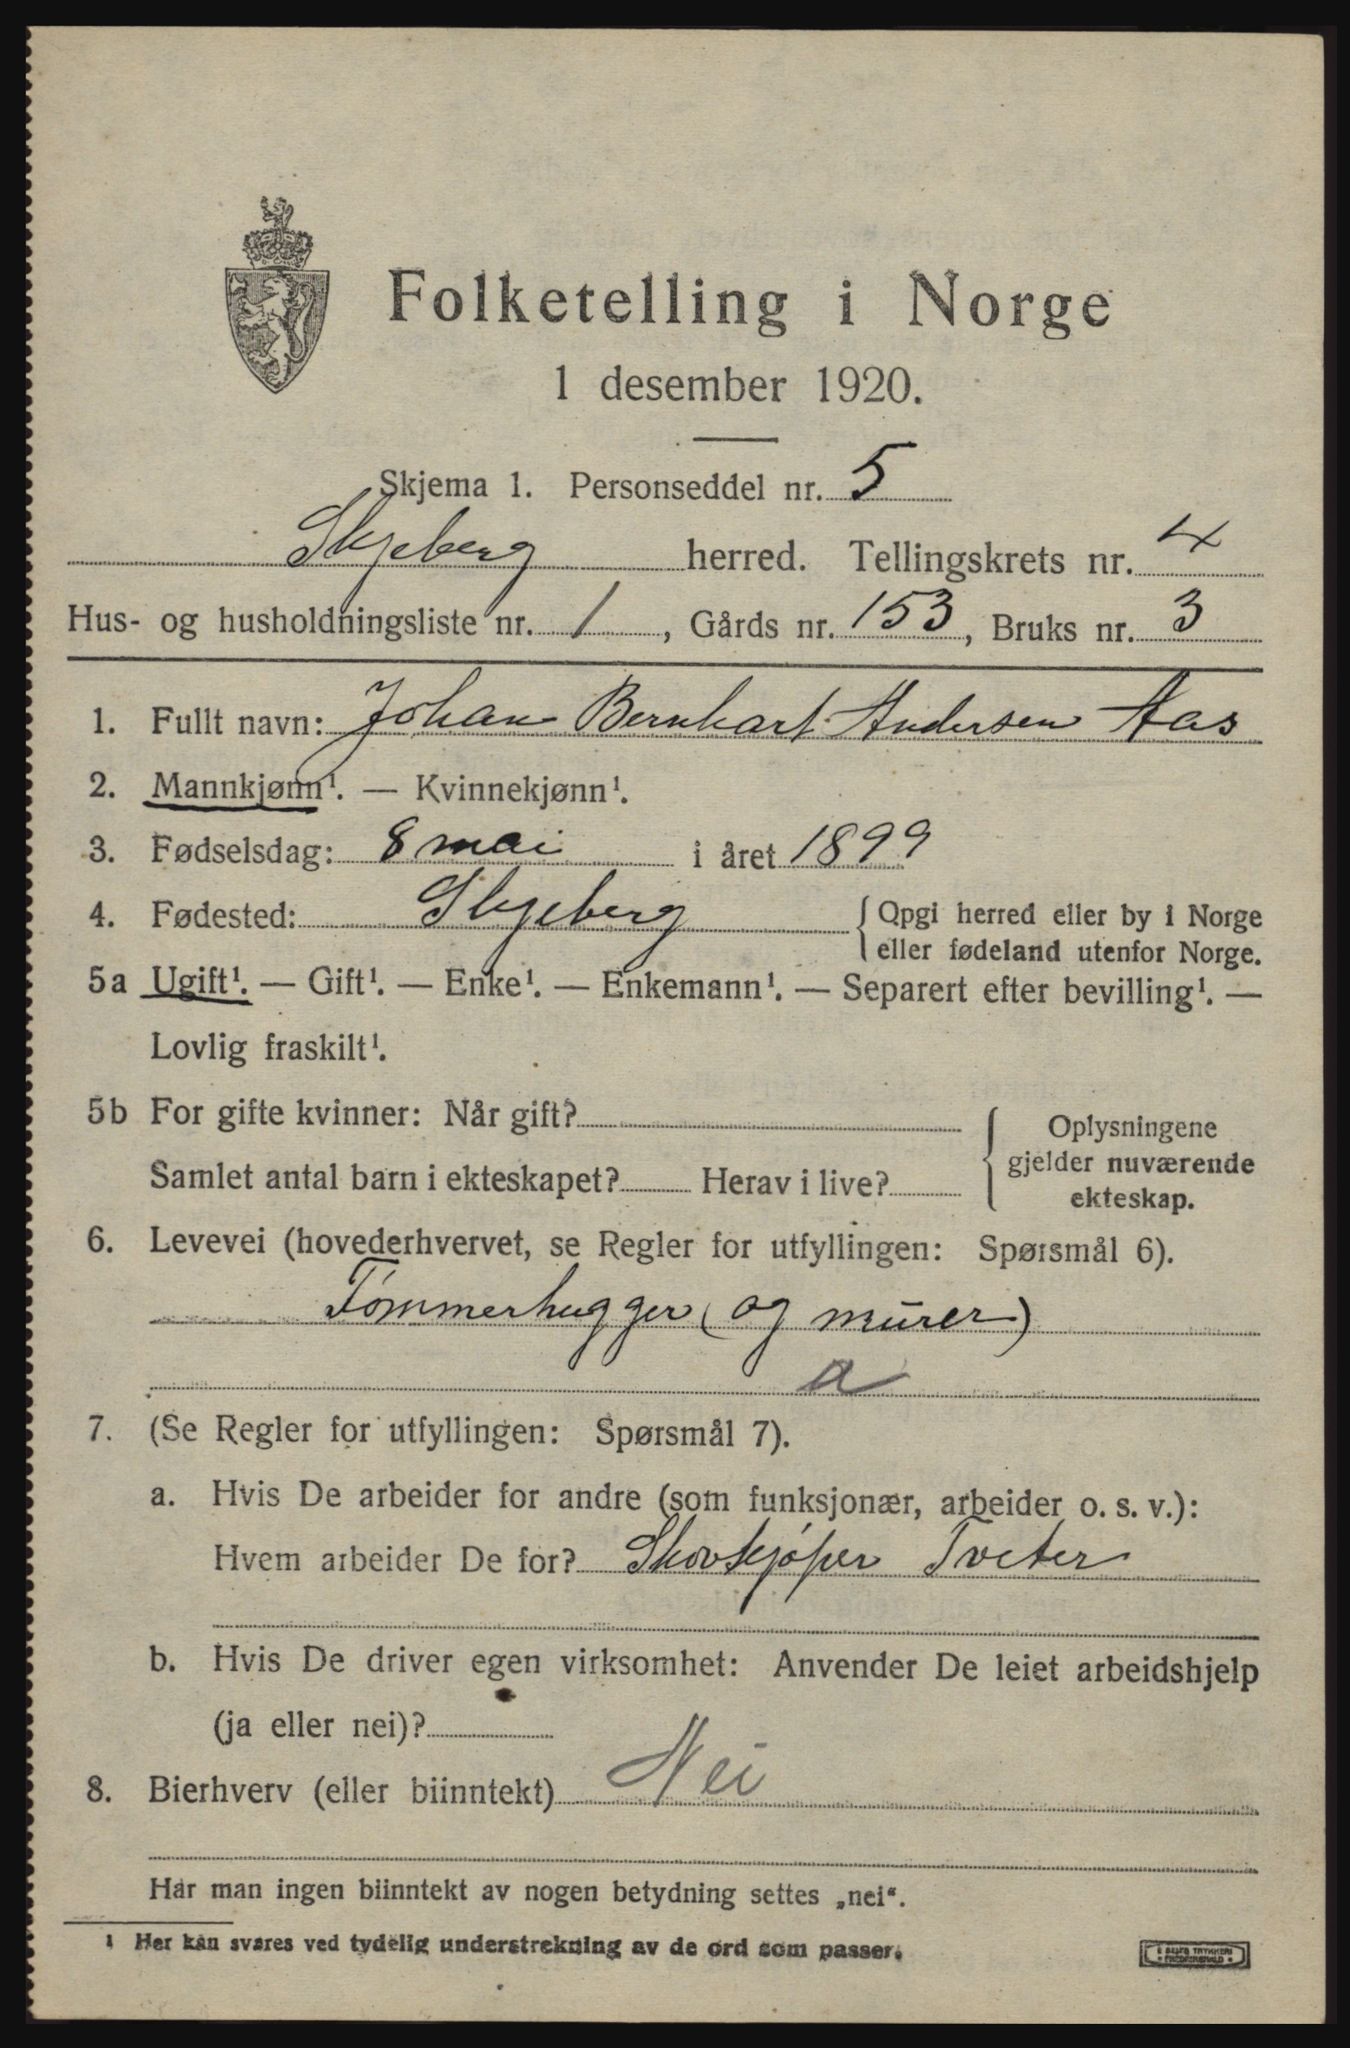 Folketelling i Norge
1 desember 1920.
Skjema 1. Personseddel nr. 5
Skjeberg herred. Tellingskrets nr. 4
Hus- og husholdningsliste nr. 1, Gårds nr. 153, Bruks nr. 3
1. Fullt navn: Johan Bernhart Andersen Aas
2. Mannkjønn¹. — Kvinnekjønn¹.
3. Fødselsdag: 8 mai i året 1899
4. Fødested: Skjeberg { Opgi herred eller by i Norge
eller fødeland utenfor Norge.
5a Ugift¹. — Gift¹. — Enke¹. — Enkemann¹. — Separert efter bevilling¹. —
Lovlig fraskilt¹.
5b For gifte kvinner: Når gift?
Samlet antal barn i ekteskapet? Herav i live?
Oplysningene
gjelder nuværende
ekteskap.
6. Levevei (hovederhvervet, se Regler for utfyllingen: Spørsmål 6).
Tømmerhugger (og murer)
a
7. (Se Regler for utfyllingen: Spørsmål 7).
a. Hvis De arbeider for andre (som funksjonær, arbeider o. s. v.):
Hvem arbeider De for? Skovkjøper Tveter
b. Hvis De driver egen virksomhet: Anvender De leiet arbeidshjelp
(ja eller nei)?
8. Bierhverv (eller biinntekt) Nei
Har man ingen biinntekt av nogen betydning settes „nei“.
¹ Her kan svares ved tydelig understrekning av de ord som passer.